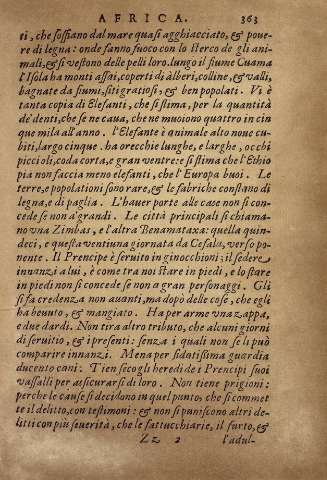 AFRICA. 363
ti, che soffiano dal mare quasi agghiacciato, & poue-
re di legna: onde fanno fuoco con lo sterco de gli ani-
mali, & si vestono delle pelli loro. lungo il fiume Cuama
l'Isola ha monti assai, coperti di alberi, colline, & valli,
bagnate da fiumi, siti gratiosi, & ben popolati. Vi è
tanta copia di Elefanti, che si stima, per la quantità
de' denti, che se ne caua, che ne muoiono quattro in cin
que mila all'anno. l'Elefante è animale alto noue cu-
biti, largo cinque. ha orecchie lunghe, e larghe, occhi
piccioli, coda corta, e gran ventre: e si stima che l'Ethio
pia non faccia meno elefanti, che l'Europa buoi. Le
terre, e popolationi sono rare, & le fabriche constano di
legna, e di paglia. L'hauer porte alle case non si con-
cede se non a' grandi. Le città principali si chiama-
no vna Zimbas, e l'altra Benamataxa: quella quin-
deci, e questa ventiuna giornata da Cefala, verso po-
nente. Il Prencipe è seruito in ginocchioni; il sedere
innanzi a lui, è come tra noi stare in piedi, e lo stare
in piedi non si concede se non a gran personaggi. Gli
si fa credenza non auanti, ma dopo delle cose, che egli
ha beuuto, & mangiato. Ha per arme vna zappa,
e due dardi. Non tira altro tributo, che alcuni giorni
di seruito, & i presenti: senza i quali non se li può
comparire innanzi. Mena per fidatissima guardia
ducento cani. Tien secogli heredi de i Prencipi suoi
vassalli per assicurarsi di loro. Non tiene prigioni:
perche le cause si decidono in quel punto, che si commet
te il delitto, con testimoni: & non si puniscono altri de-
litti con piu seuerità, che le fattucchiarie, il furto, &
Zz 2 l'adul-